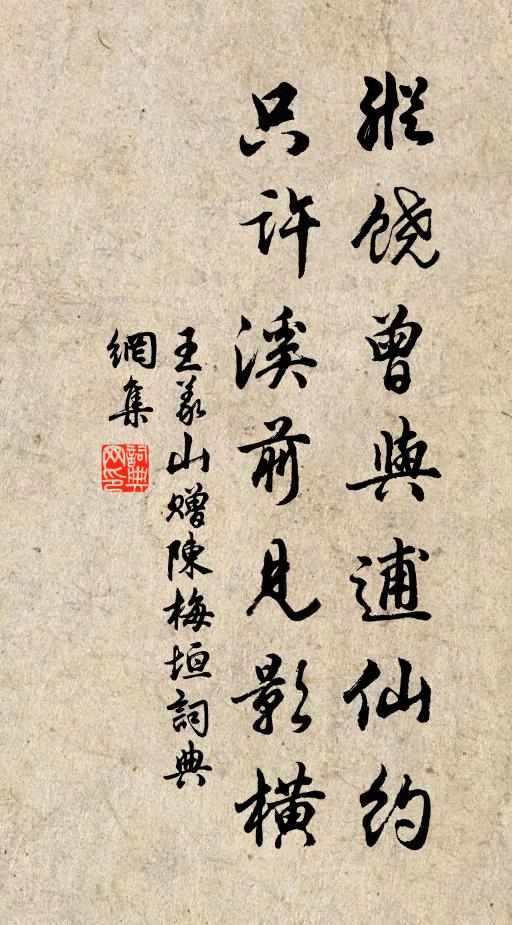 縱饶曾與逋仙約
只許溪前見影橫
王義山贈陳梅垣詞典
網集
詞典網印